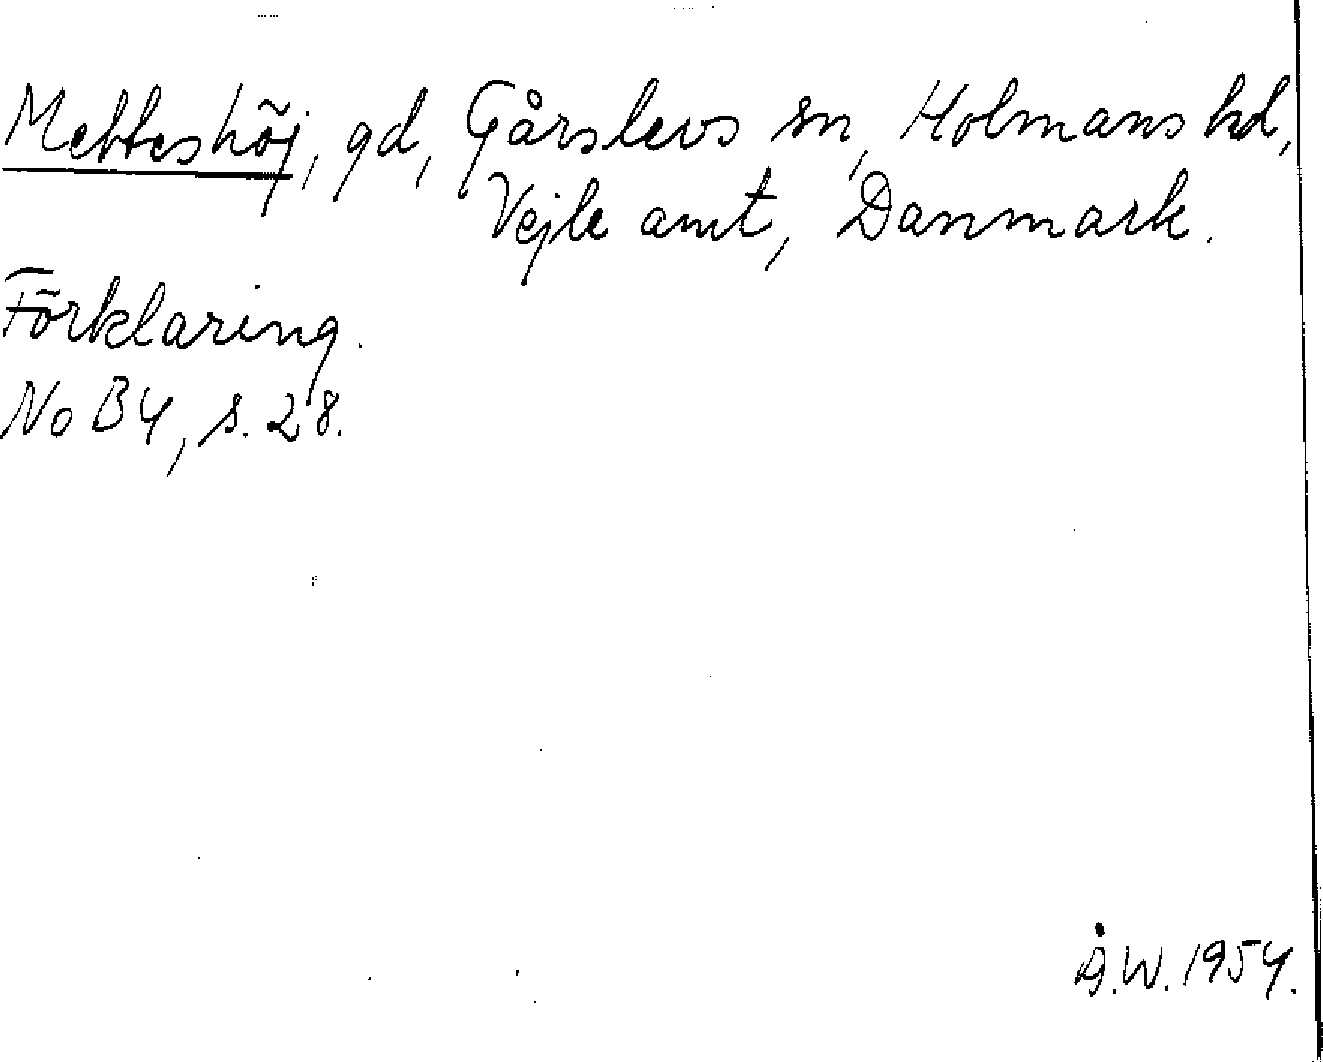 Metteshöj, gd, Gårslevs sn, Holmans hd,
Vejle amt, Danmark.
Förklaring.
NoB4, s. 28.
Å.W. 1954.